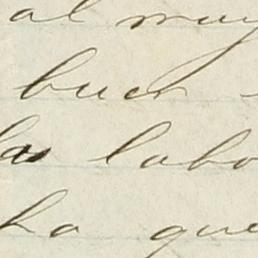 al muy
buen
las labo
ho que